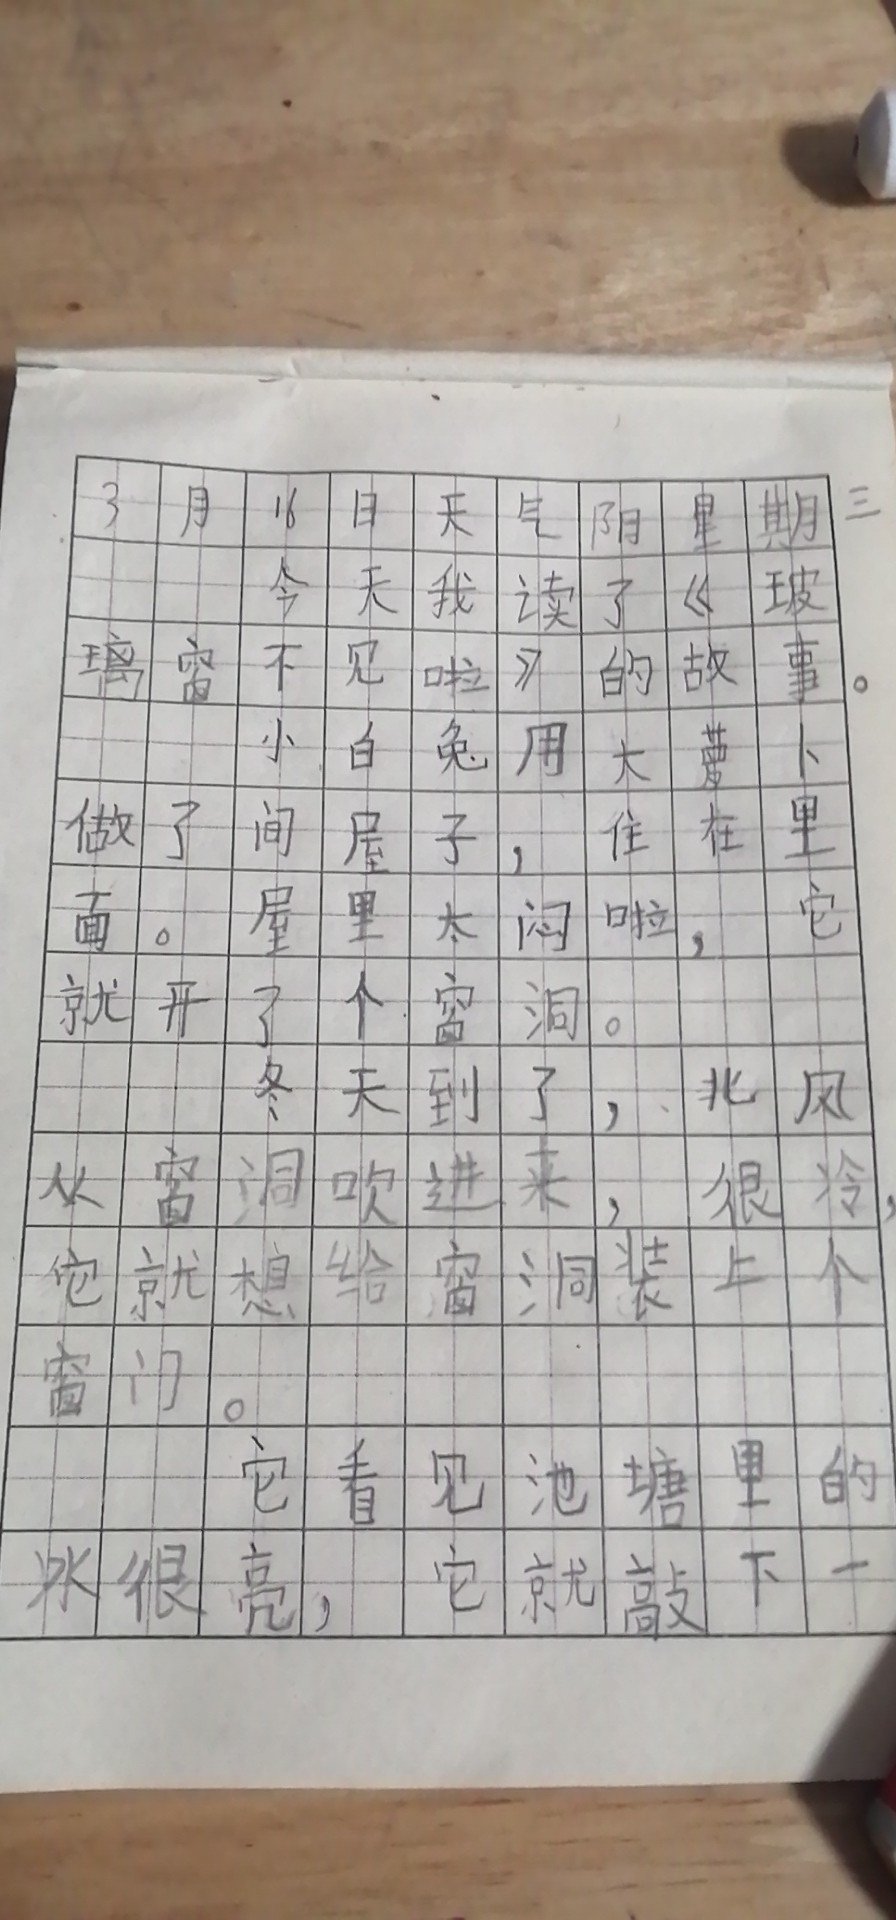 3月16日天气阴星期三
今天我读了《玻
璃窗不见啦》的故事。
小白兔用大萝卜
做了间屋子，住在里
面。屋里太闷啦，它
就开了个窗洞。
冬天到了，北风
从窗洞吹进来，很冷，
它就想给窗洞装上个
窗门。
它看见池塘里的
冰很亮，它就敲下一